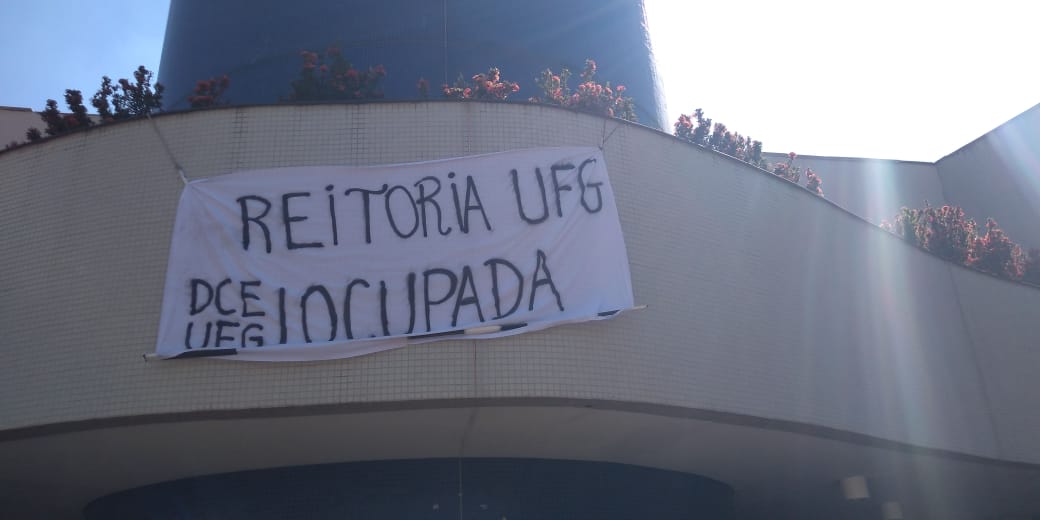 REiTORiA UFG
DCE UFG | OCUPADA